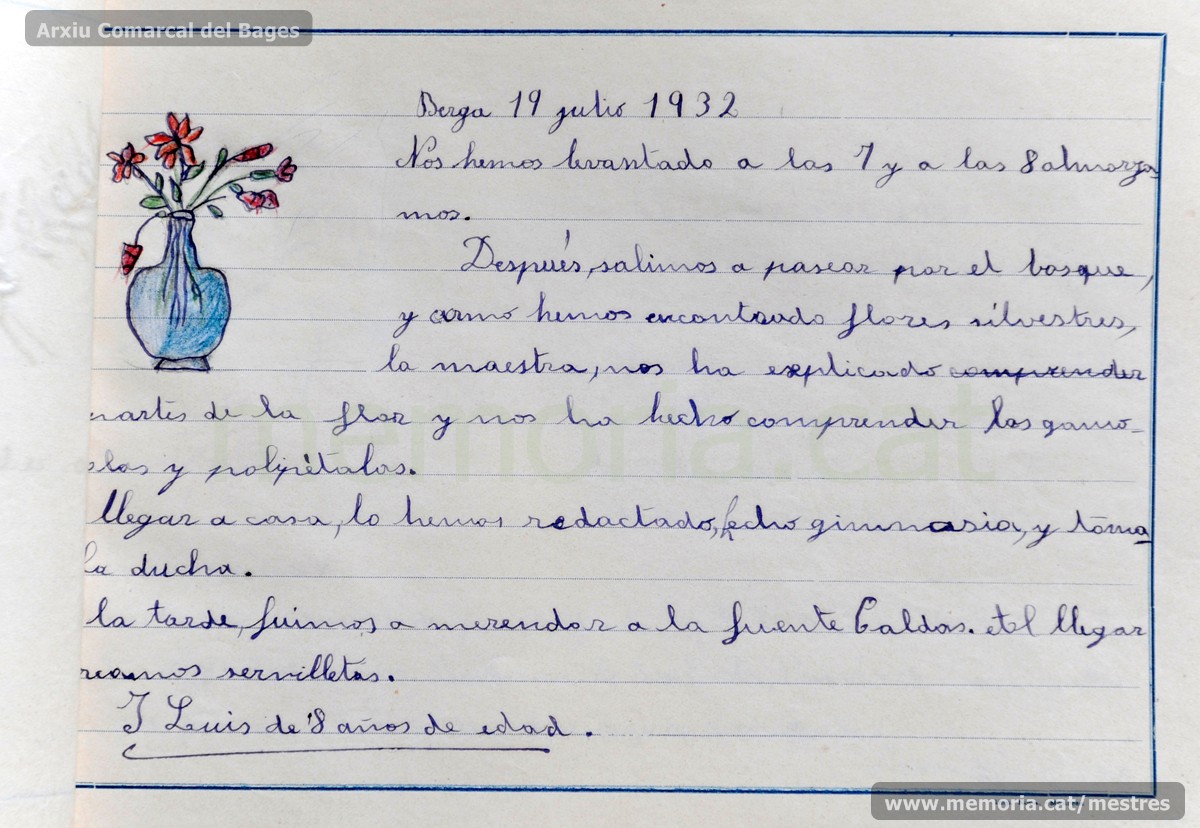 Arxiu Comarcal del Bages
Berga 19 julio 1932
Nos hemos levantado a las 7 y a las 8 almorza
mos.
Después, salimos a pasear por el bosque,
y como hemos encontrado flores silvestres,
la maestra, nos ha explicado comprender
partes de la flor y nos ha hecho comprender las gamo-
las y polipétalas.
llegar a casa, lo hemos redactado, hecho gimnasia, y toma
la ducha.
la tarde, fuimos a merendar a la fuente Caldas. Al llegar
servilletas.
J Luis de 8 años de edad.
memoria.cat
www.memoria.cat/mestres